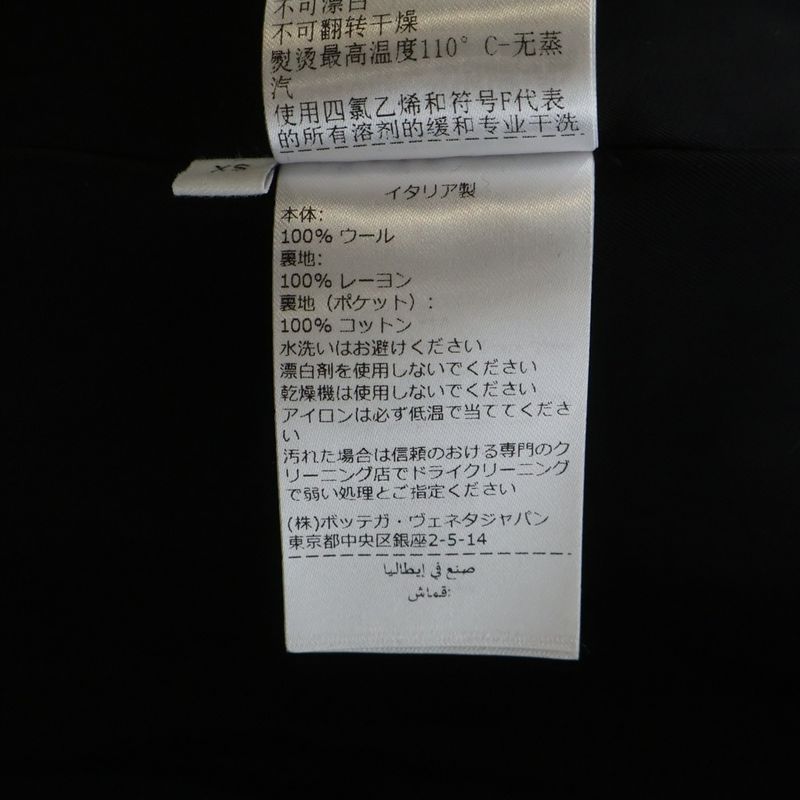 不可漂白
不可翻转干燥
熨烫最高温度110°C-无蒸
汽
使用四氯乙烯和符号F代表
的所有溶剂的缓和专业干洗
XS
イタリア製
本体:
100% ウール
裏地:
100% レーヨン
裏地（ポケット）:
100% コットン
水洗いはお避けください
漂白剤を使用しないでください
乾燥機は使用しないでください
アイロンは必ず低温で当ててくださ
い
汚れた場合は信頼のおける専門のク
リーニング店でドライクリーニング
で弱い処理とご指定ください
(株)ボッテガ・ヴェネタジャパン
東京都中央区銀座2-5-14
صنع في إيطاليا
قماش: